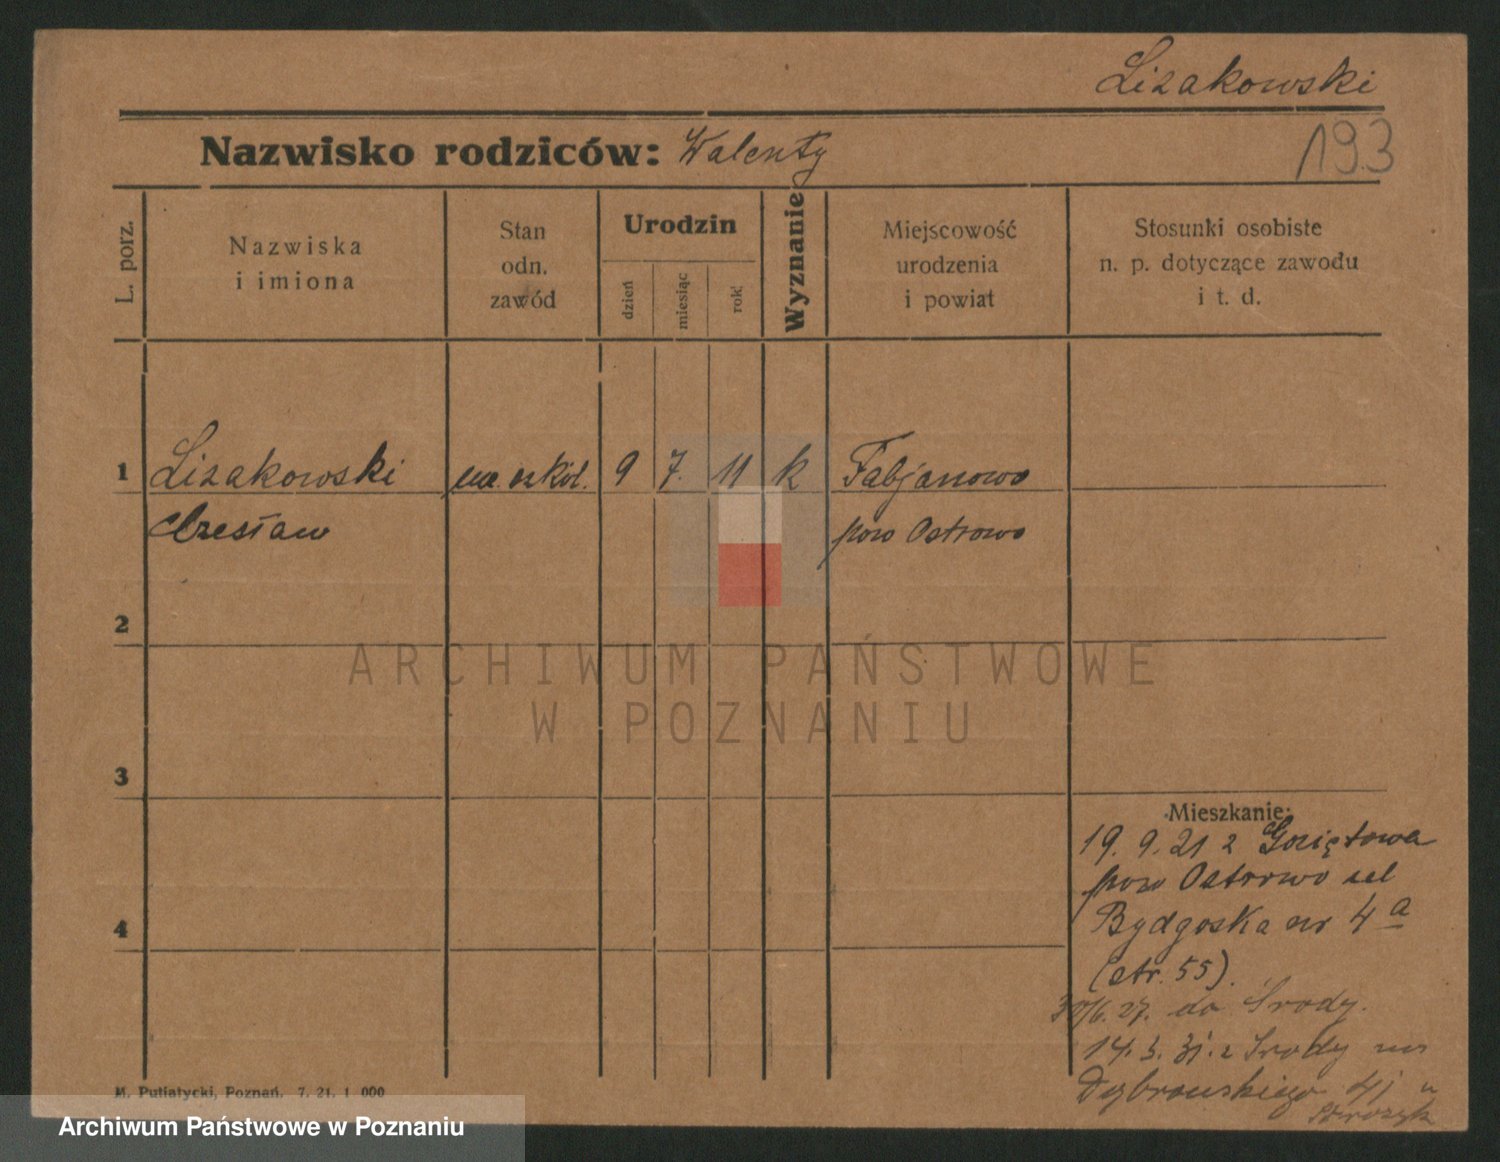 Lizakowski
Nazwisko rodziców: Walenty
193
L. porz.
Nazwiska
i imiona
Stan
odn.
zawód
Urodzin
dzień
miesiąc
rok
Wyznanie
Miejscowość
urodzenia
i powiat
Stosunki osobiste
n. p. dotyczące zawodu
i t. d.
1
Lizakowski
ucz. szkół.
9
7.
11
k
Fabjanowo
Czesław
pow Ostrowo
2
ARCHIWUM PAŃSTWOWE
W POZNANIU
3
Mieszkanie:
19. 9. 21 z
pow Ostrowo ul
4
Bydgoska nr 4 a
(str. 55).
30/6. 27. do Środy.
14. 3. 31. z Środy
Dąbrowskiego 41
M. Putiatycki, Poznań. 7. 21. 1 000
Archiwum Państwowe w Poznaniu